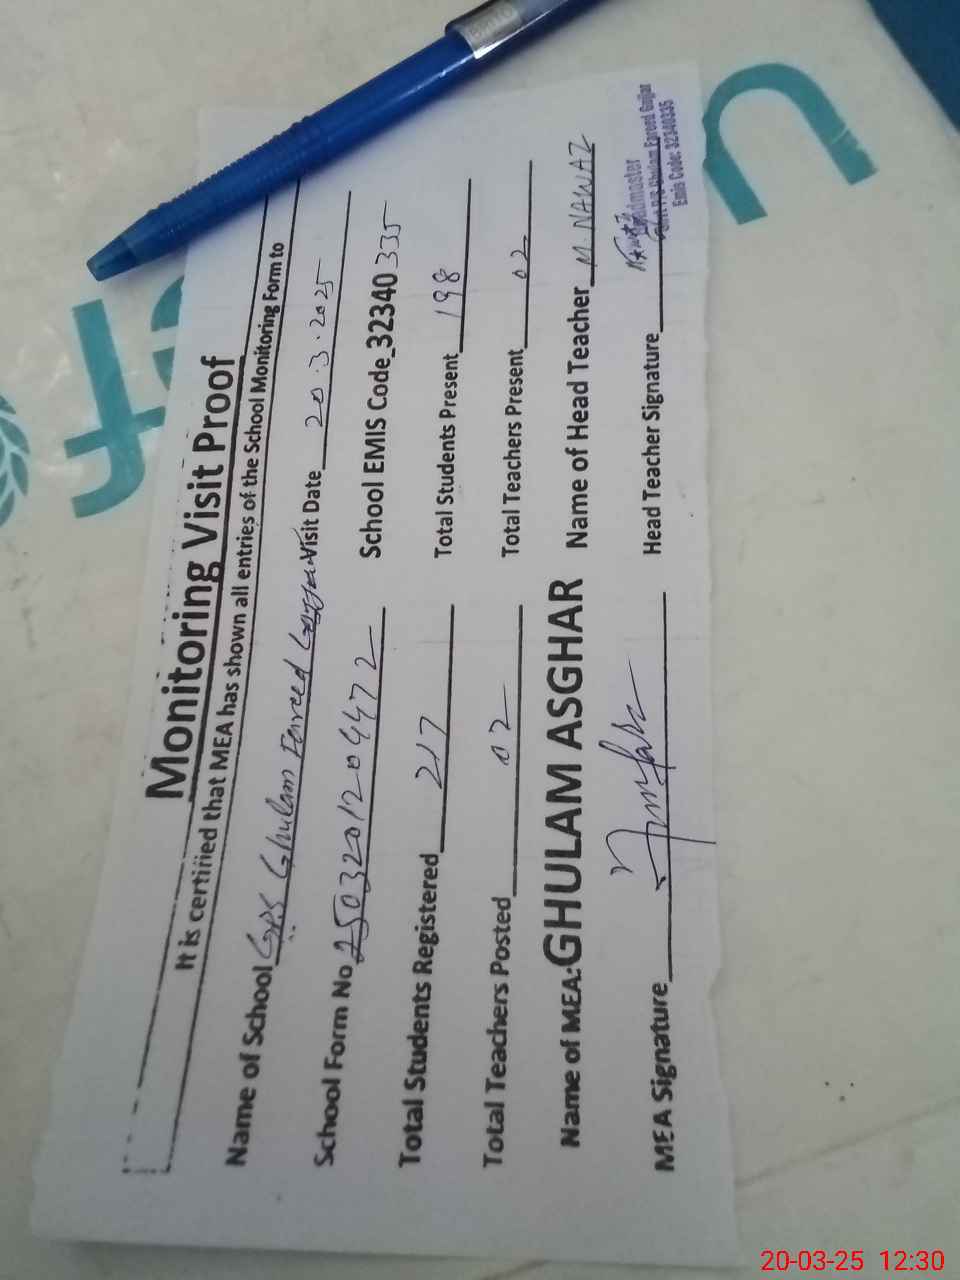 Monitoring Visit Proof
It is certified that MEA has shown all entries of the School Monitoring Form to
Name of School G.P.S Ghulam Fareed Visit Date 20.3.2025
School Form No 2503201204472 School EMIS Code 32340335
Total Students Registered 217 Total Students Present 198
Total Teachers Posted 02 Total Teachers Present 02
Name of MEA: GHULAM ASGHAR Name of Head Teacher M. NAWAZ
MEA Signature Head Teacher Signature
Headmaster
Ghulam Fareed Gujjar
Emis Code: 32340335
20-03-25 12:30